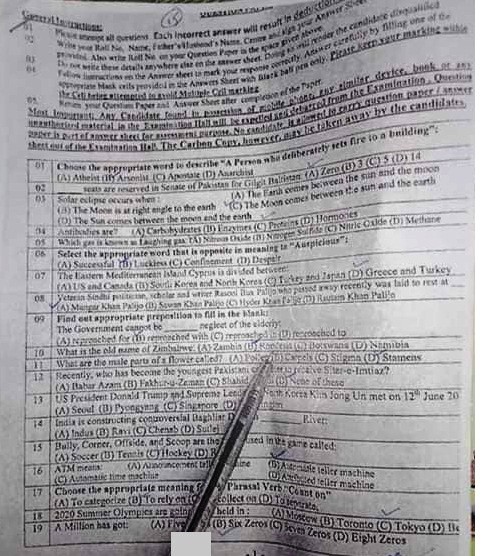 General Instructions:
(15)
01 Please attempt all questions. Each incorrect answer will result in deduction
02 Write your Roll No, Name, Father's/Husband's Name, Centre and sign your Answer Sheet
provided. Also write Roll No. on your Question Paper in the space given above.
03 Do not write these details anywhere else on the answer sheet. Doing so will render the candidate disqualified
04 Follow instructions on the Answer sheet to mark your response correctly, carefully by filling one of the
appropriate blank ovals provided in the Answers Sheet with black ball pen only. Please keep your marking within
the Cell being attempted to avoid Multiple Cell marking.
05. Return your Question Paper and Answer Sheet after completion of the Paper.
Most Important: Any Candidate found in possession of mobile phone, any similar device, book or any
unauthorized material in the Examination Hall will be expelled and debarred from the Examination. Question
paper is part of answer sheet for assessment purpose. No candidate is allowed to carry question paper / answer
sheet out of the Examination Hall. The Carbon Copy, however, may be taken away by the candidates.
01 Choose the appropriate word to describe "A Person who deliberately sets fire to a building":
(A) Atheist (B) Arsonist (C) Apostate (D) Anarchist
02 ____ seats are reserved in Senate of Pakistan for Gilgit Baltistan. (A) Zero (B) 3 (C) 5 (D) 14
03 Solar eclipse occurs when : (A) The Earth comes between the sun and the moon
(B) The Moon is at right angle to the earth (C) The Moon comes between the sun and the earth
(D) The Sun comes between the moon and the earth
04 Antibodies are? (A) Carbohydrates (B) Enzymes (C) Proteins (D) Hormones
05 Which gas is known as Laughing gas: (A) Nitrous Oxide (B) Nitrogen Sulfide (C) Nitric Oxide (D) Methane
06 Select the appropriate word that is opposite in meaning to "Auspicious":
(A) Successful (B) Luckless (C) Confinement (D) Despair
07 The Eastern Mediterranean Island Cyprus is divided between:
(A) US and Canada (B) South Korea and North Korea (C) Turkey and Japan (D) Greece and Turkey
08 Veteran Sindhi politician, scholar and writer Rasool Bux Palijo who passed away recently was laid to rest at ___
(A) Mungar Khan Palijo (B) Sawan Khan Palijo (C) Hyder Khan Palijo (D) Rustam Khan Palijo
09 Find out appropriate preposition to fill in the blank:
The Government cannot be ____ neglect of the elderly:
(A) reproached for (B) reproached with (C) reproached in (D) reproached to
10 What is the old name of Zimbabwe: (A) Zambia (B) Rhodesia (C) Botswana (D) Namibia
11 What are the male parts of a flower called? (A) Pollen (B) Carpels (C) Stigma (D) Stamens
12 Recently, who has become the youngest Pakistani receive Sitar-e-Imtiaz?
(A) Babar Azam (B) Fakhar-u-Zaman (C) Shahid (D) None of these
13 US President Donald Trump and Supreme North Korea Kim Jong Un met on 12th June 20
(A) Seoul (B) Pyongyang (C) Singapore (D)
14 India is constructing controversial Baglihar River:
(A) Indus (B) Ravi (C) Chenab (D) Sutlej
15 Bully, Corner, Offside, and Scoop are the used in the game called:
(A) Soccer (B) Tennis (C) Hockey (D)
16 ATM means: (A) Announcement (B) Automatic teller machine
(C) Automatic time machine (D) teller machine
17 Choose the appropriate meaning Phrasal Verb "Count on"
(A) To categorize (B) To rely on (C) collect on (D) To separate
18 2020 Summer Olympics are going held in : (A) Moscow (B) Toronto (C) Tokyo (D)
19 A Million has got: (A) Five (B) Six Zeros (C) Seven Zeros (D) Eight Zeros